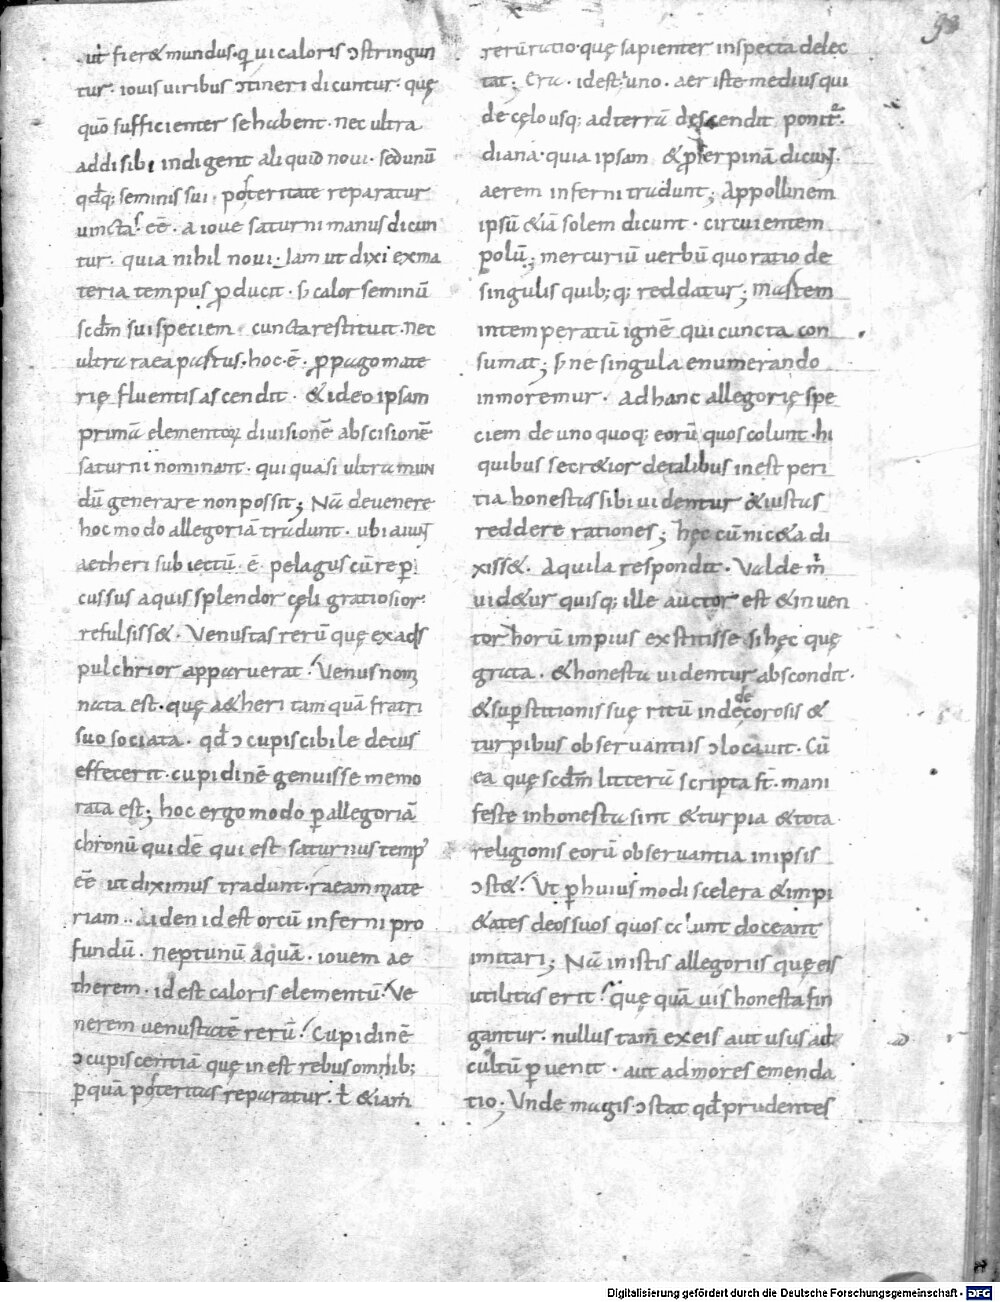 98
ut fier& mundus· qui caloris ɔstringun
tur· iouis uiribus ɔtineri dicuntur· quę
quō sufficienter se habent· nec ultra
addi sibi indigent aliquid noui· sed unū
qđq; seminis sui· posteritate reparatur
uincta· ēē· a ioue saturni manus dicun
tur· quia nihil noui· Jam ut dixi ex ma
teria tempus ꝓducit· s; calor seminū
scđm sui speciem· cuncta restituit· nec
ultra raea pastus· hoc·ē· ꝓpago mate
rię fluentis ascendit· & ideo ipsam
primā elementoꝝ diuisionē abscisionē
saturni nominant· qui quasi ultra mun
dū generare non possit; Nā de uenere
hoc modo allegoriā tradunt· ubi aiunt
aetheri subiectū·ē· pelagus cū re ꝑ
cussus aquis splendor cęli gratiosior
refulsiss&· Venustas rerū quę ex adsp
pulchrior apparuerat· Venus nom
nata est· quę a&heri tam quā fratri
suo sociata· qđ ɔcupiscibile decus
effecerit· cupidinē genuisse memo
rata est; hoc ergo modo ꝑ allegoriā
chronū quidē qui est saturnus temp'
ēē ut diximus tradunt· raeam mate
riam·· Aiden id est orcū inferni pro
fundū· neptunū aquā· iouem ae
therem· id est caloris elementū· Ve
nerem uenustatē rerū· Cupidinē
ɔcupiscentiā quę inest rebus omnib;
ꝑ quā posteritas reparatur· ł &iam
rerū ratio· quę sapienter inspecta delec
tat; Era· id est iuno· aer iste medius qui
de cęlo usq; ad terrā descendit ponit᷑
diana· quia ipsam & ꝓserpinā dicunt·
aerem inferni tradunt; Appollinem
ipsū &iā solem dicunt· circuientem
polū; mercuriū uerbū quo ratio de
singulis quib;q; reddatur; martem
intemperatū ignē qui cuncta con
sumat; s; ne singula enumerando
inmoremur· ad hanc allegorię spe
ciem de uno quoq; eorū quos colunt· hi
quibus secr&ior de talibus inest peri
tia honestas sibi uidentur & iustas
reddere rationes; hęc cū nic&a di
xiss&· Aquila respondit· Valde m̄
uid&ur quisq; ille auctor est & inuen
tor horū impius extitisse· si hęc quę
grata· & honesta uidentur abscondit·
& suꝑstitionis suę ritū in dedecorosis &
turpibus obseruantiis ɔlocauit· Cū
ea quę scđm litterā scripta st̄· mani
feste inhonesta sint & turpia & tota
religionis eorū obseruantia in ipsis
ɔst&· Ut ꝑ huius modi scelera & impi
&ates deos suos quos colunt doceant
imitari; Nā in istis allegoriis quę eis
utilitas erit· quę quā uis honesta fin
gantur· nullus tam̄ ex eis aut usus ad
cultū ꝑuenit· aut ad mores emenda
tio; Unde magis ɔstat qđ prudentes
Digitalisierung gefördert durch die Deutsche Forschungsgemeinschaft - DFG